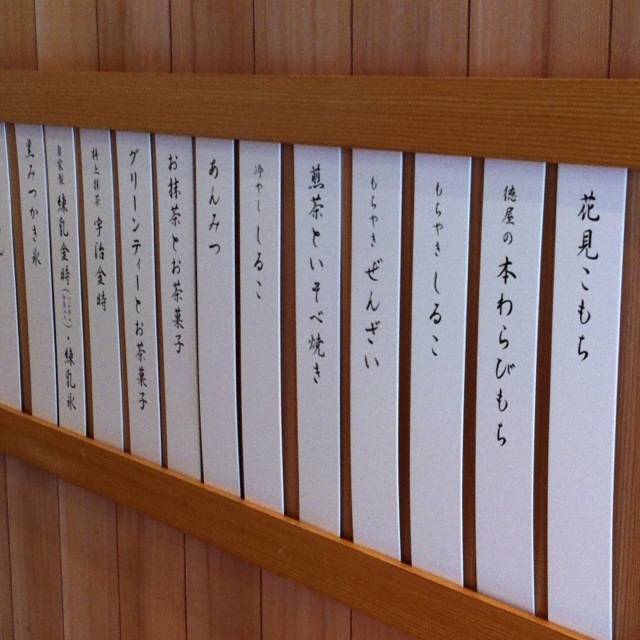 花見こもち
徳屋の 本わらびもち
もちやき しるこ
もちやき ぜんざい
煎茶といそべ焼き
冷やし しるこ
あんみつ
お抹茶とお茶菓子
グリーンティーとお茶菓子
特上抹茶 宇治金時
自家製 練乳金時・練乳氷
黒みつかき氷